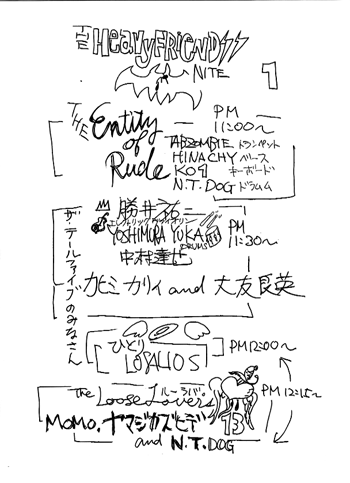 THE HeavyFRIENDSS
NITE
1
THE Entity of Rude
PM 11:00~
ABZOMBIE トランペット
HINACHY ベース
KO91 キーボード
N.T.DOG ドラムム
勝井祐二
エレクトリックヴァイオリン
YOSHIMURA YUKA
DRUMS
中村達也
PM 11:30~
ザ・テールファイブのみなさん
カヒミ カリィ and 大友良英
ひとり LOSALIOS
PM 12:00~
The Loose Lovers
ルーラバ。
13
PM 12:15~
MOMO, ヤマジカズヒデ
and N.T.DOG